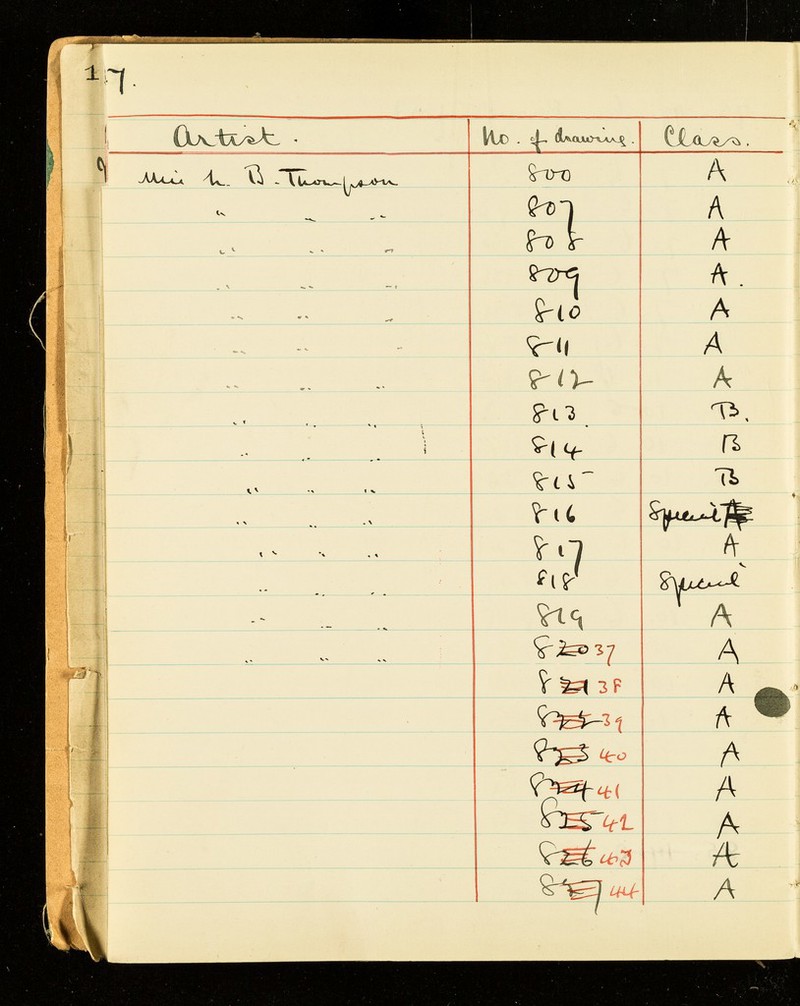 17.
Artist. No. of drawing. Class.
Miss h. B. Thompson 800 A
" " " 807 A
" " " 808 A
" " " 809 A.
" " " 810 A
" " " 811 A
" " " 812 A
" " " 813. B.
" " " 814 B
" " " 815 B
" " " 816 Special A
" " " 817 A
" " " 818 Special
" " " 819 A
" " " 82037 A
82138 A
82239 A
82340 A
82441 A
82542 A
82643 A
82744 A